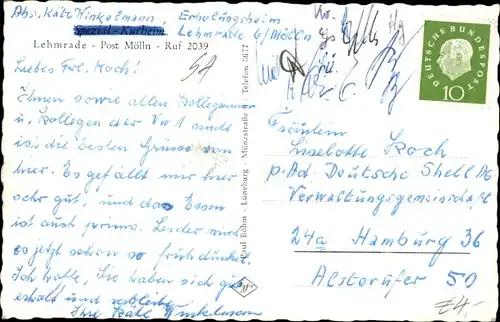 Abs. Käte Winkelmann, Erholungsheim
Spezial-Kurheim Lehmrade b/Mölln
Lehmrade - Post Mölln - Ruf 2039
Liebes Frl. Koch!
Ihnen sowie allen Kolleginnen
u. Kollegen der Vw 1 sende
ich die besten Grüsse von
hier. Es gefällt mir hier
sehr gut, und das Essen
ist auch prima. Leider wird
es jetzt schon so früh dunkel.
Ich hoffe, Sie haben sich gut
erhalt und verbleibe
Ihre Käte Winkelmann
Paul Böhm - Lüneburg - Münzstraße 9 - Telefon 3677
DEUTSCHE BUNDESPOST
10
Fräulein
Liselotte Koch
p. Ad. Deutsche Shell AG
Verwaltungsgemeinschaft
24a Hamburg 36
Alsterufer 50